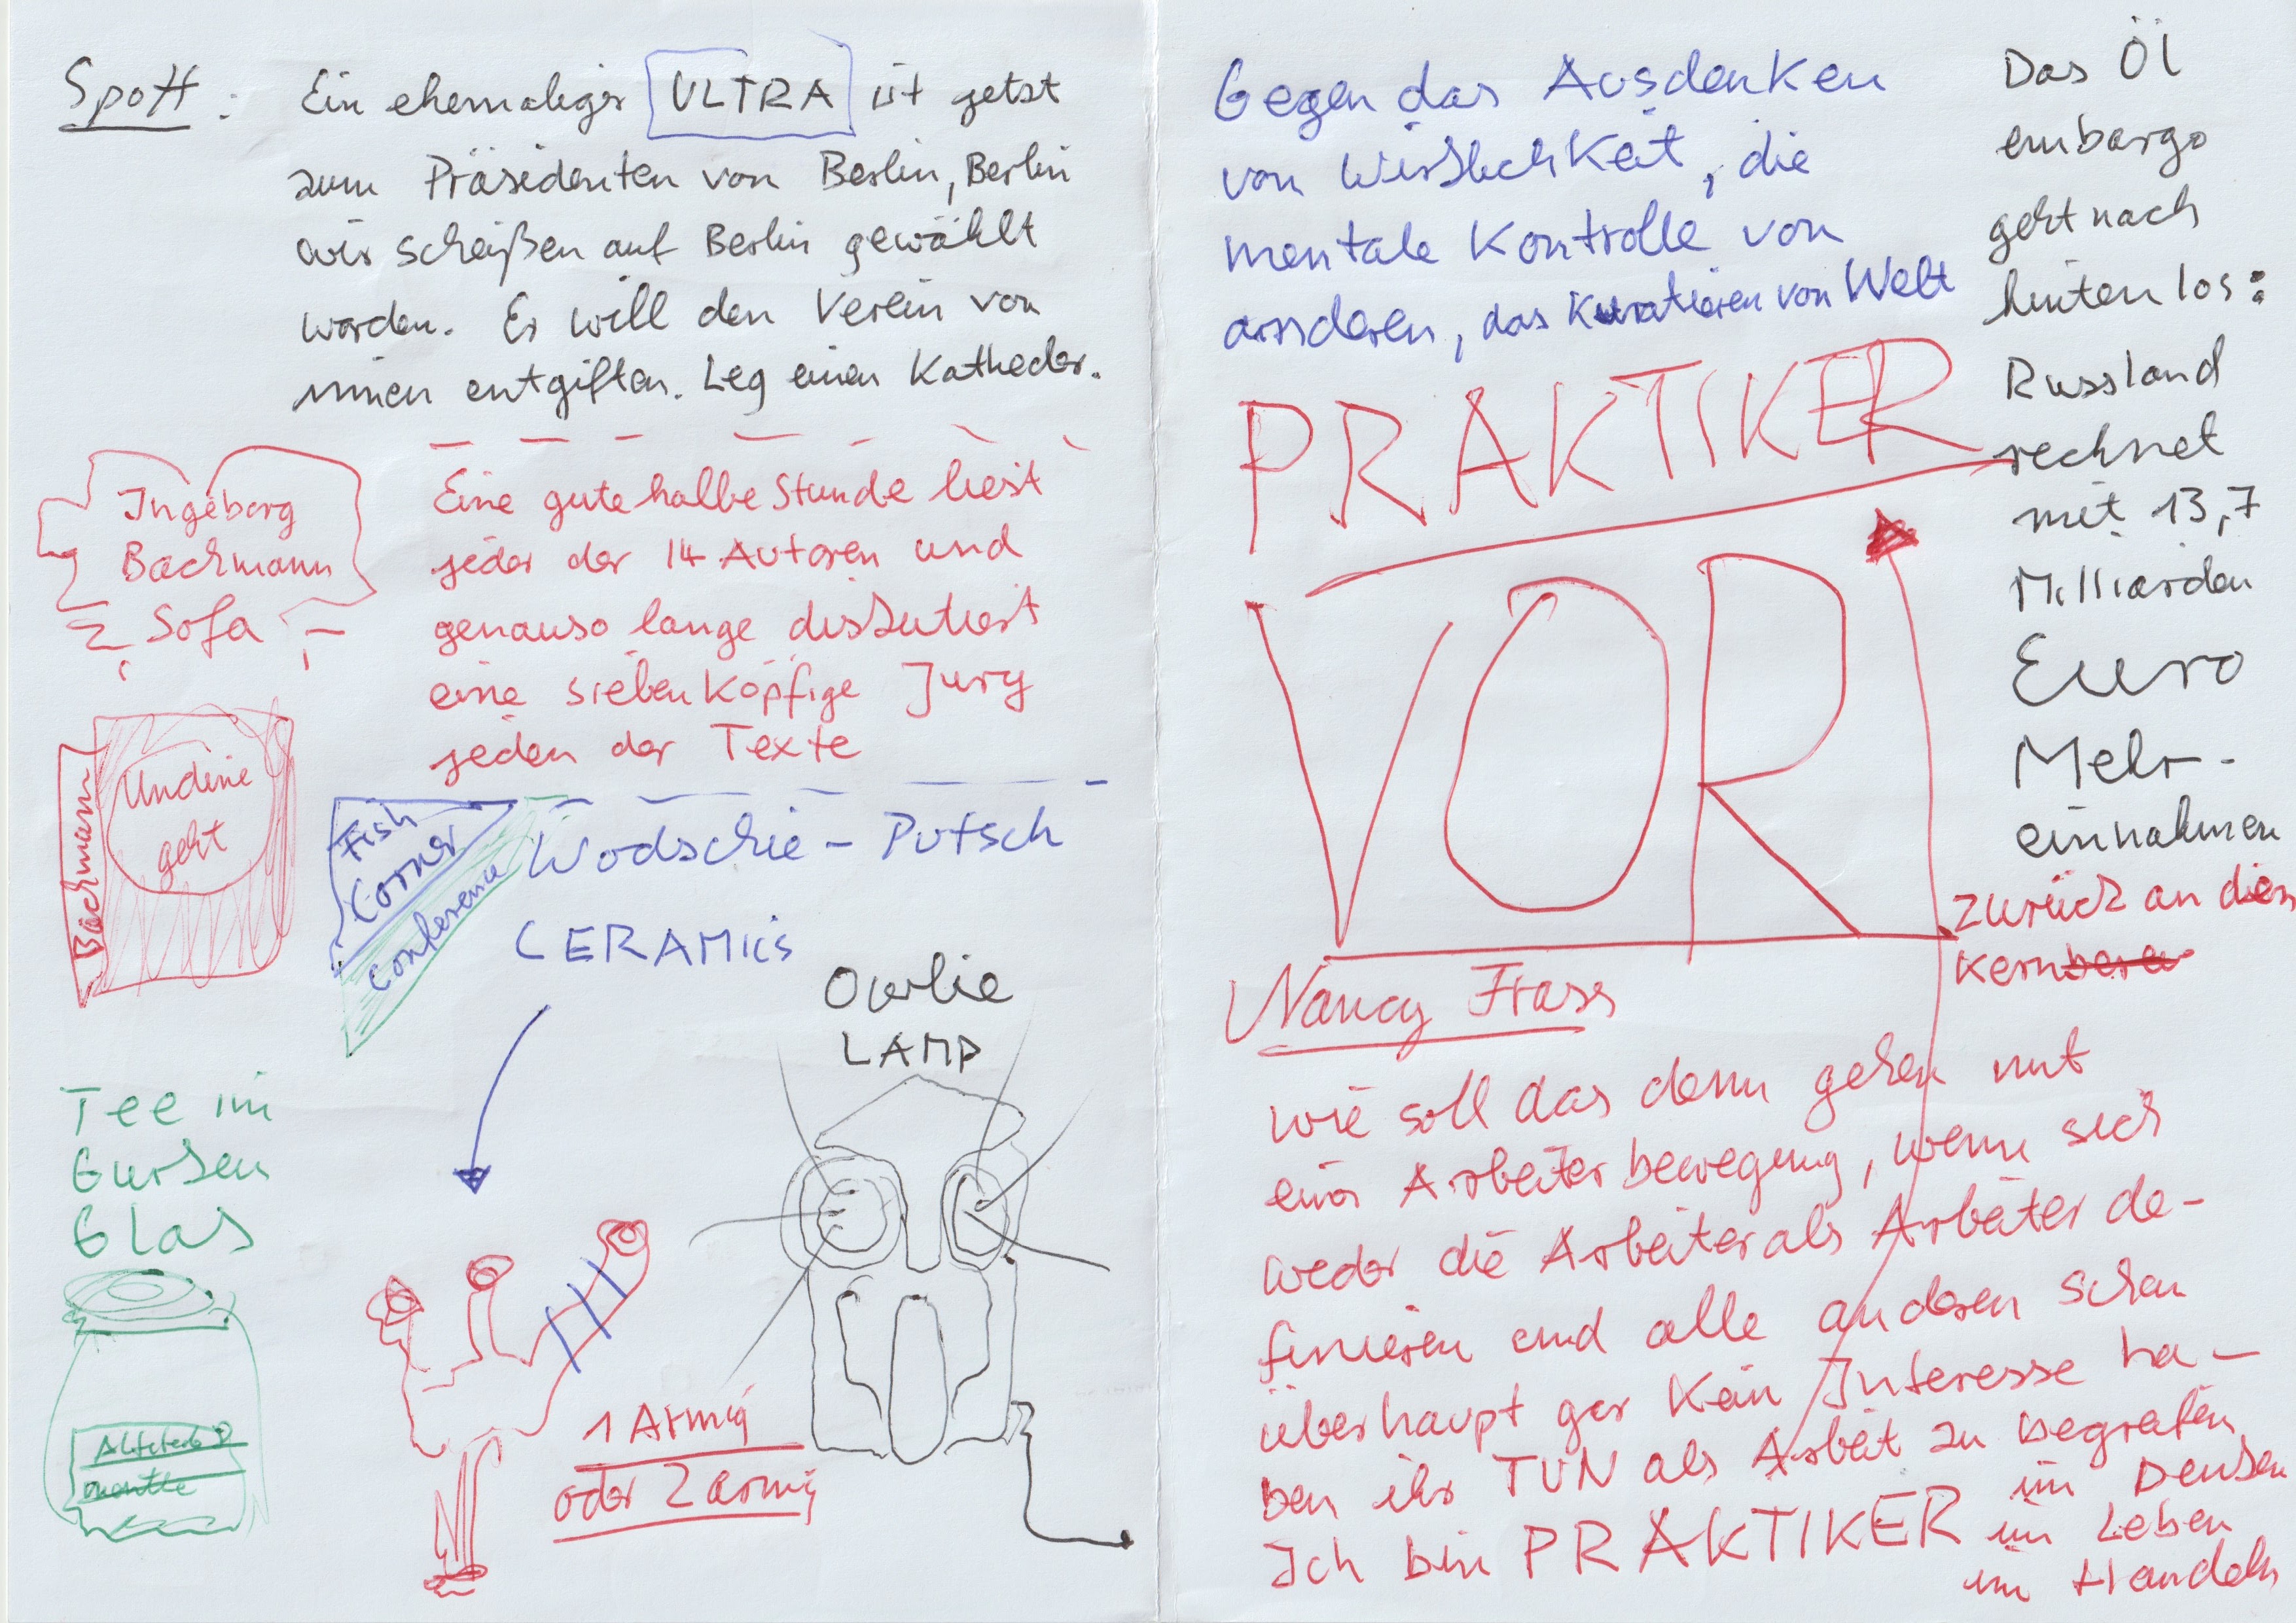 Spott:
Ein ehemaliger ULTRA ist jetzt
zum Präsidenten von Berlin, Berlin
wir scheißen auf Berlin gewählt
worden. Er will den Verein von
innen entgiften. Leg einen Katheder.
Ingeborg
Bachmann
Sofa
Eine gute halbe Stunde liest
jeder der 14 Autoren und
genauso lange diskutiert
eine siebenköpfige Jury
jeden der Texte
Bachmann
Undine
geht
Fish
Corner
Conference
Wodschie - Putsch
CERAMICS
Owlie
LAMP
Tee im
Gurken
Glas
1 Armig
oder 2 armig
Gegen das Ausdenken
von Wirklichkeit, die
mentale Kontrolle von
anderen, das Kuratieren von Welt
PRAKTIKER
VOR
Nancy Fraser
wie soll das denn gehen mit
einer Arbeiterbewegung, wenn sich
weder die Arbeiter als Arbeiter de-
finieren und alle anderen schon
überhaupt gar kein Interesse ha-
ben ihr TUN als Arbeit zu begreifen
Ich bin PRAKTIKER im Denken
im Leben
im Handeln
Das Öl
embargo
geht nach
hinten los:
Russland
rechnet
mit 13,7
Milliarden
Euro
Mehr-
einnahmen
Zurück an den
Kern